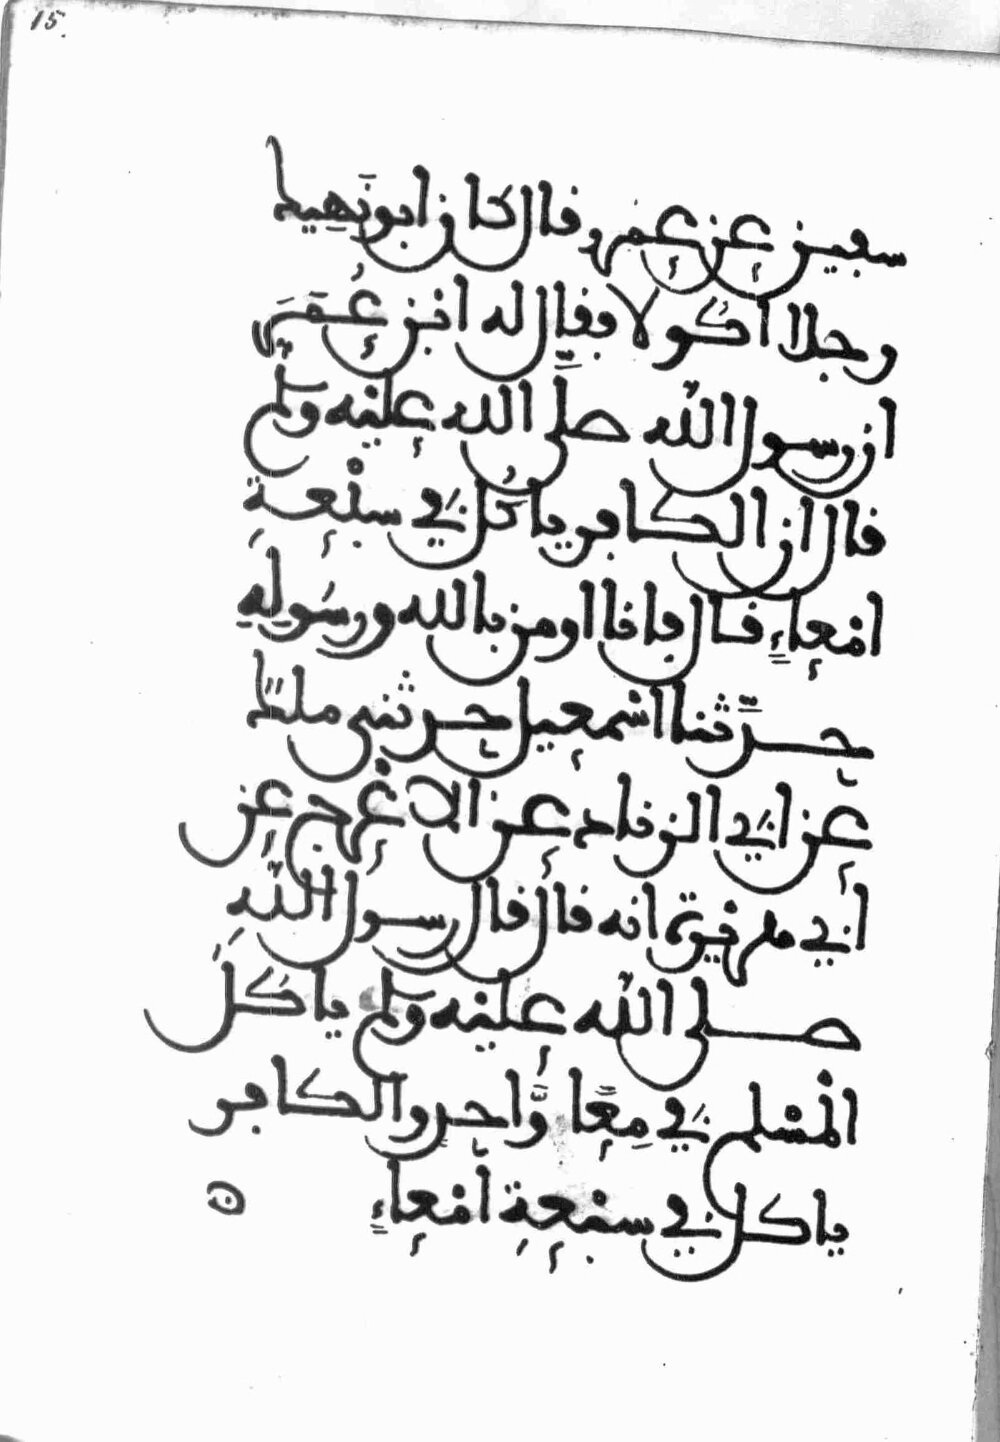 15.
سفين عن عمرو قال كان ابو نَهِيط
رجلا اكُولا فقال له ابن عُمَرَ
ان رسول الله صلَّى الله عليه وسلم
قال ان الكافر ياكُل في سبْعةِ
امْعاءٍ قال فانا اومن بالله ورسَولِهِ
حدَّثنا اسْمعيل حدثني ملك
عن ابي الزناد عن الاعْرج عن
أبي هريرة انه قال قال رسول اللهِ
صلى الله عليه وسلم ياكُل
المْسْلم في مِعًا وَّاحِدٍ والكافر
ياكل في سبْعةِ امْعاءٍ